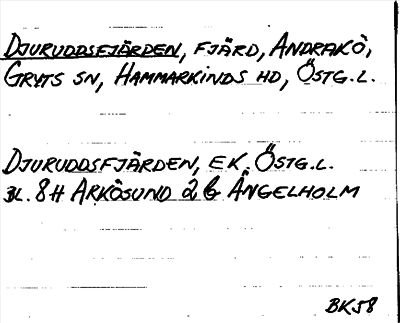 DJURUDDSFJÄRDEN, FJÄRD, ANDRAKÖ,
GRYTS SN, HAMMARKINDS HD, ÖSTG.L.
DJURUDDSFJÄRDEN, EK. ÖSTG.L.
BL. 8H ARKÖSUND 2 b ÄNGELHOLM
BK58